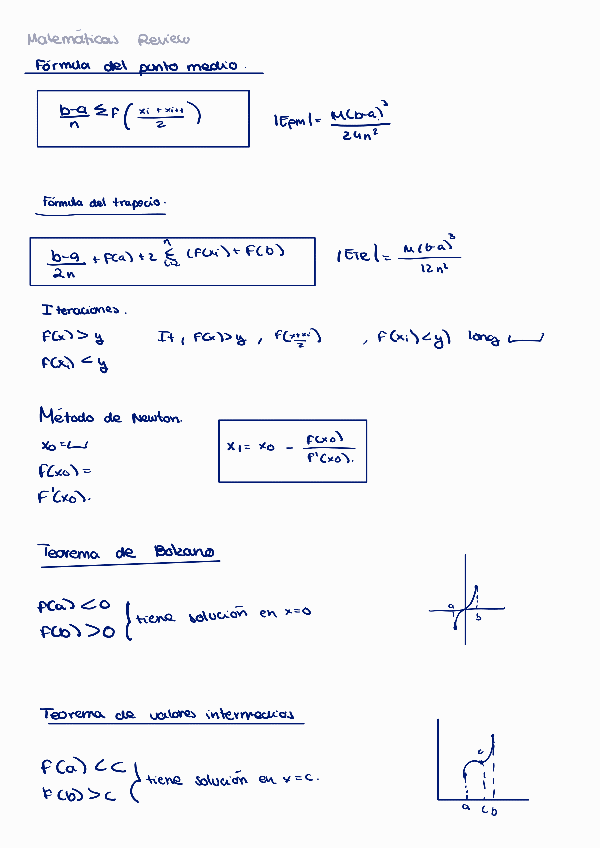 Matemáticas Review
Fórmula del punto medio.
b-a/n Σ F(xi + xi+1/2) |Epm| = M(b-a)³/24n²
Fórmula del trapecio.
b-a/2n + F(a) + 2 Σ (F(xi) + F(b) |ETe| = M(b-a)³/12n²
Iteraciones.
F(x) > y It, F(x) > y, F(x+xi/2), F(xi) < y) long
F(xi) < y
Método de Newton.
x0 =
x1 = x0 - F(x0)/F'(x0).
F(x0) =
F'(x0).
Teorema de Bolzano
F(a) < 0
tiene solución en x=0
F(b) > 0
a
b
Teorema de valores intermedios
F(a) < c
tiene solución en x=c.
F(b) > c
c
a c b